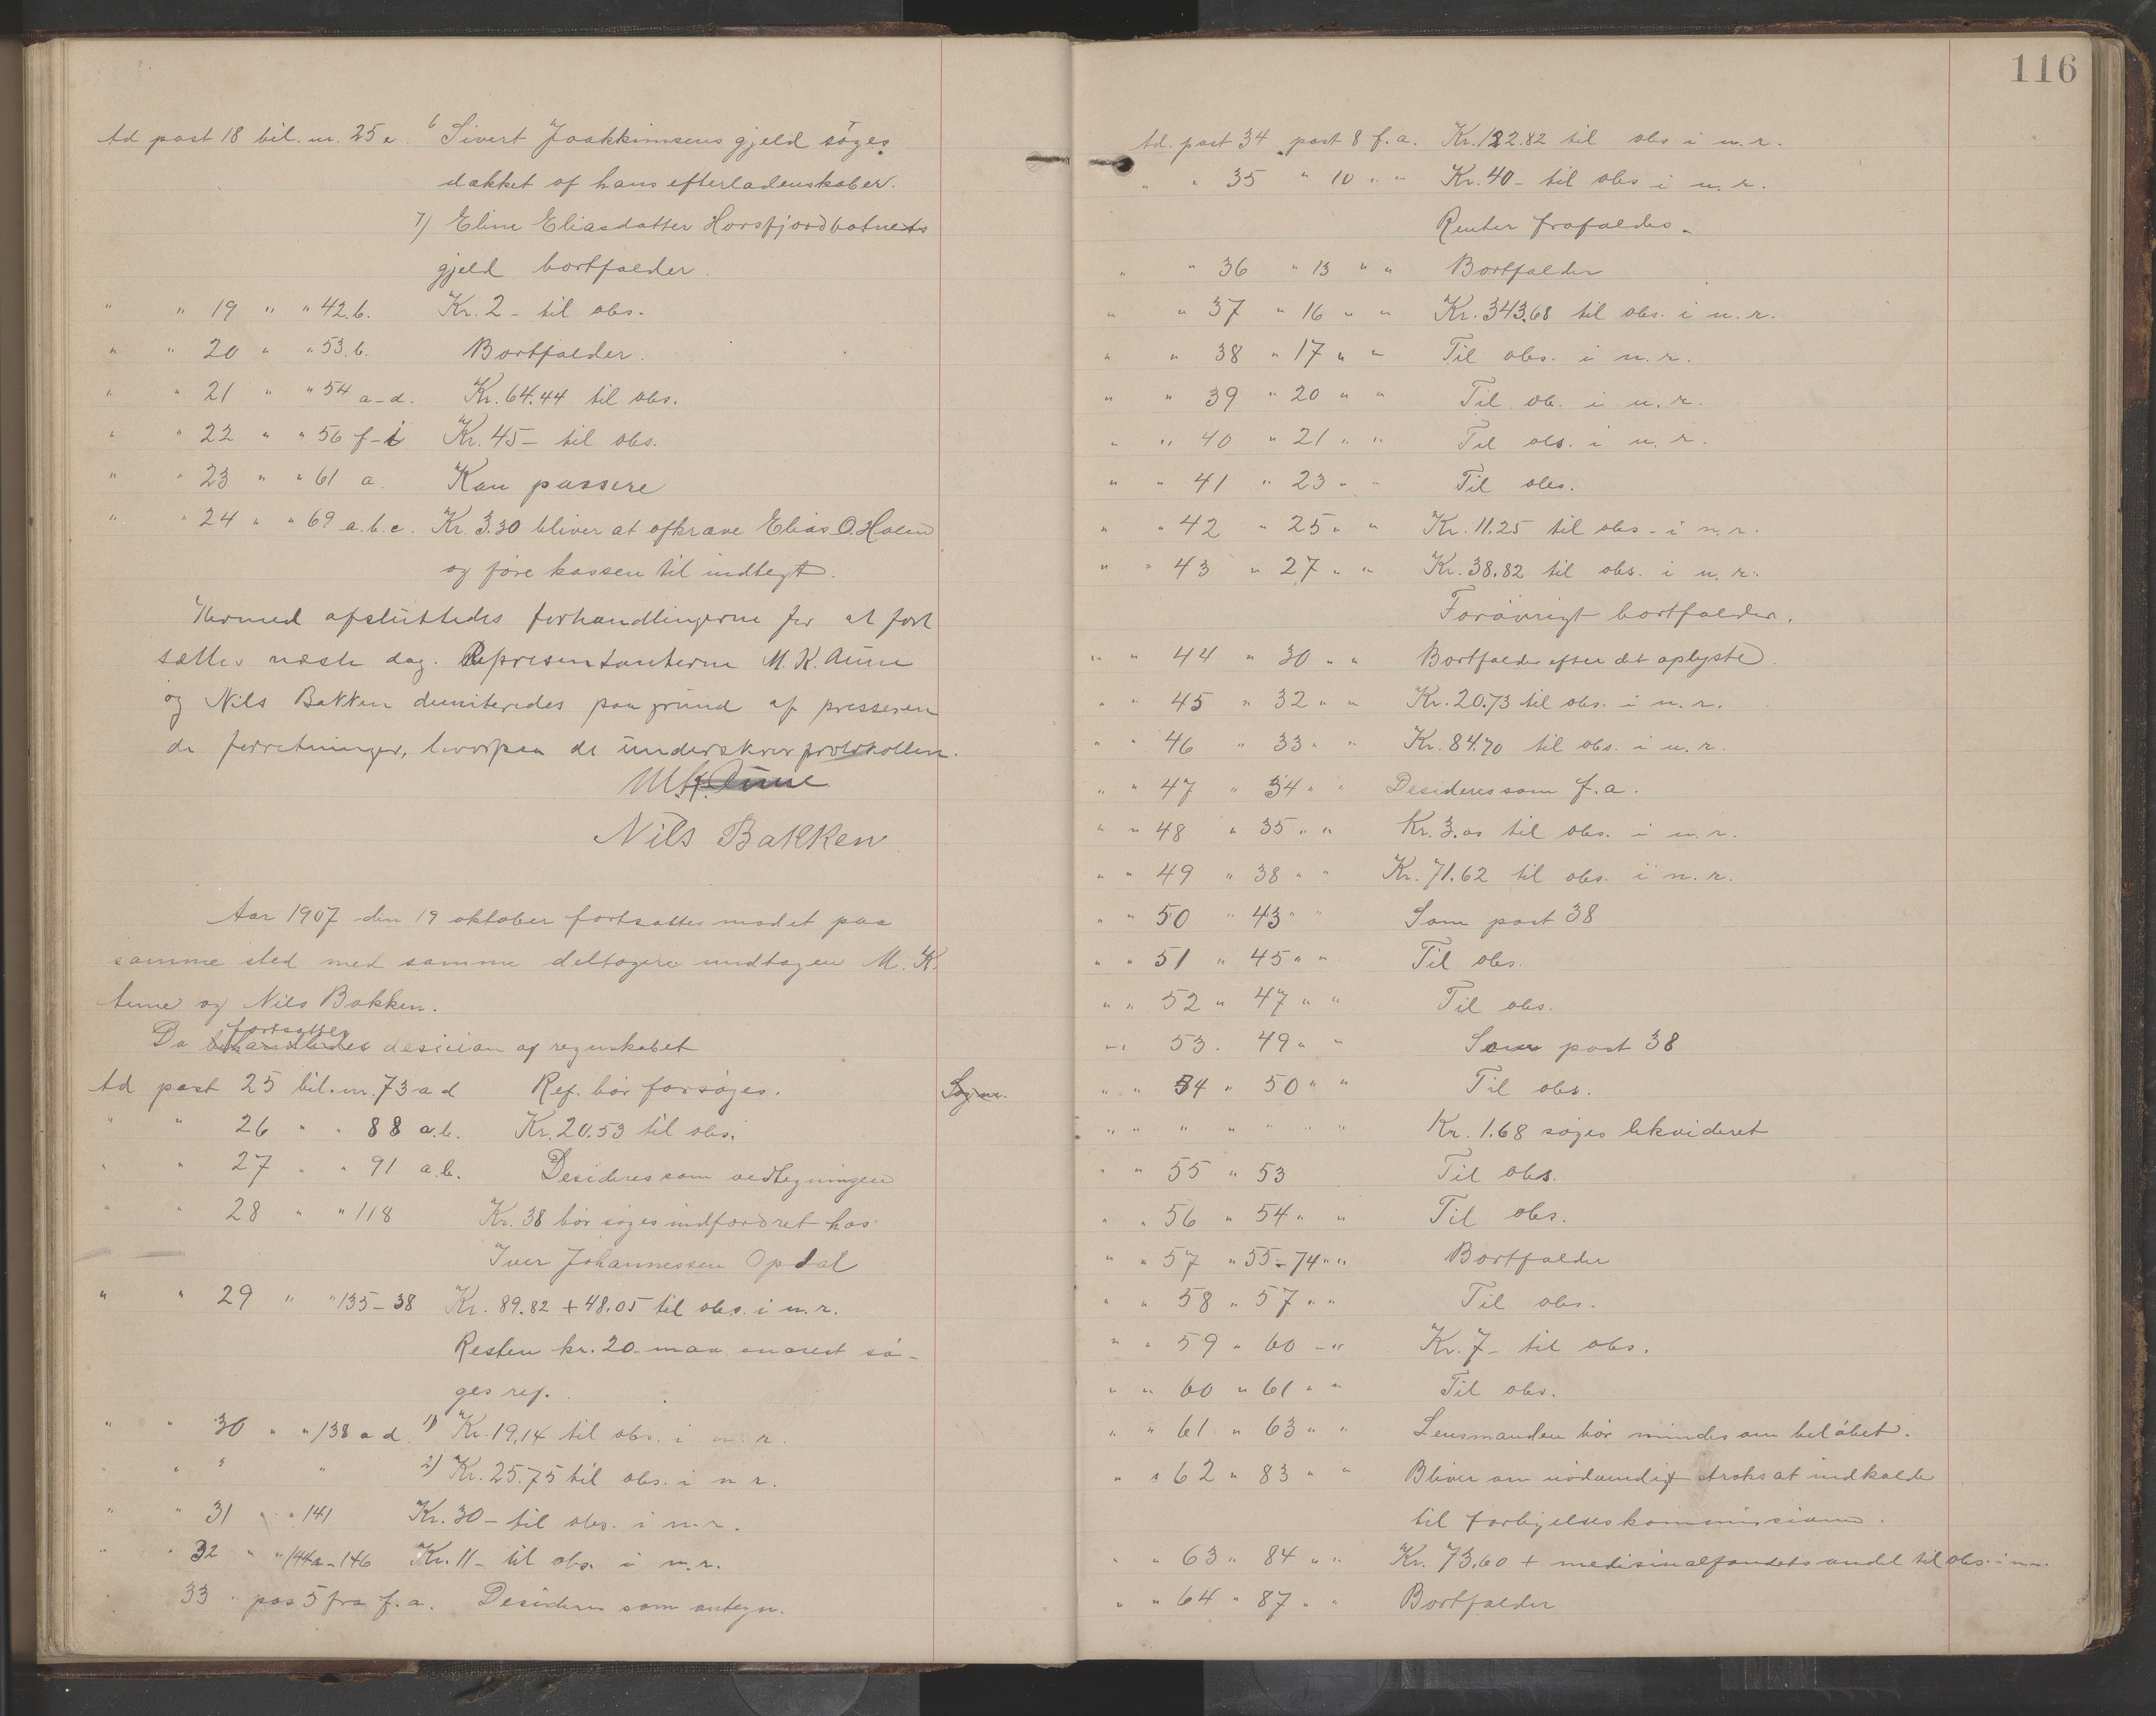 Ad post 18 bil. nr. 25 e. 6 Sivert Joakkimsens gjeld søges
dækket af hans efterladenskaber.
7) Eline Eliasdatter Horsfjordbotnets
gjeld bortfalder.
" " 19 " " 42.b. Kr. 2 - til obs.
" " 20 " " 53.b. Bortfalder.
" " 21 " " 54 a-d. Kr. 64.44 til obs.
" " 22 " " 56 f-i Kr. 45 - til obs.
" " 23 " " 61 a. Kan passere
" " 24 " " 69 a.b.c. Kr. 3.30 bliver at afkræve Elias O. Holm
og føre kassen til indtegt.
Hermed afsluttedes forhandlingerne for at fort
sættes næste dag. Representanterne M. K. Aune
og Nils Bakken demiteredes paa grund af presseren
de forretninger, hvorpaa de underskrev protokollen.
M.K. Aune
Nils Bakken
Aar 1907 den 19 oktober fortsattes mødet paa
samme sted med samme deltagere undtagen M. K.
Aune og Nils Bakken.
fortsattes
Da behandledes desision af regnskabet
Ad post 25 bil. nr. 73 a d Ref. bør forsøges.
" " 26 " " 88 a.b. Kr. 20.53 til obs.
" " 27 " " 91 a.b. Desideres som vedtegningen
" " 28 " " 118 Kr. 38 bør søges indfordret hos
Iver Johannessen Opdal
" " 29 " " 135-38 Kr. 89.82 + 48.05 til obs. i n. r.
Resten kr. 20 - maa snarest sø-
ges ref.
" " 30 " " 138 a d. 1) Kr. 19,14 til obs. i n. r.
" " " 2) Kr. 25.75 til obs. i n r.
" " 31 " " 141 Kr. 30 - til obs. i n. r.
" " 32 " " 144a-146 Kr. 11 - til obs. i n. r.
" 33 " pos 5 fra f. a. Desideres som antegn.
116
Ad. post 34 post 8 f. a. Kr. 122.82 til obs i n. r.
" " 35 " 10 " " Kr. 40 - til obs i n. r.
Renter frafaldes.
" " 36 " 13 " " Bortfalder
" " 37 " 16 " " Kr. 343.68 til obs. i n. r.
" " 38 " 17 " " Til obs. i n. r.
" " 39 " 20 " " Til ob. i n. r.
" " 40 " 21 " " Til obs. i n. r.
" " 41 " 23 " " Til obs.
" " 42 " 25 " " Kr. 11.25 til obs. i n. r.
" " 43 " 27 " " Kr. 38.82 til obs. i n. r.
Forøvrigt bortfalder.
" " 44 " 30 " " Bortfalder efter det oplyste.
" " 45 " 32 " " Kr. 20.73 til obs. i n. r.
" " 46 " 33 " " Kr. 84.70 til obs. i n. r.
" " 47 " 34 " " Desideres som f. a.
" " 48 " 35 " " Kr. 3.00 til obs. i n. r.
" " 49 " 38 " " Kr. 71.62 til obs. i n. r.
" " 50 " 43 " " Som post 38
" " 51 " 45 " " Til obs.
" " 52 " 47 " " Til obs.
" " 53. 49 " " Som post 38
" " 54 " 50 " " Til obs.
" " " " " " " Kr. 1.68 søges likvideret
" " 55 " 53 Til obs.
" " 56 " 54 " " Til obs.
" " 57 " 55-74 " " Bortfalder
" " 58 " 57 " " Til obs.
" " 59 " 60 " " Kr. 7 - til obs.
" " 60 " 61 " " Til obs.
" " 61 " 63 " " Lensmanden bør mindes om beløbet.
" " 62 " 83 " " Bliver om nødvendigt straks at indkalde
til forligelseskommissionen.
" " 63 " 84 " " Kr. 73,60 + medisinalfondets andel til obs. i n. r.
" " 64 " 87 " " Bortfalder